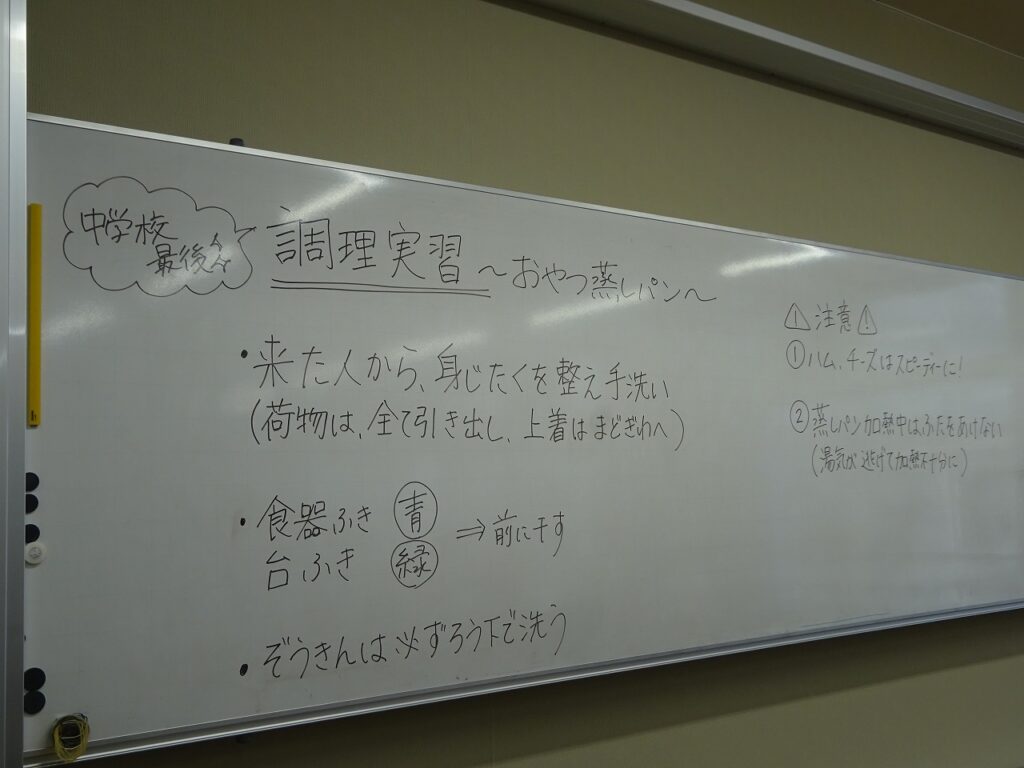 中学校
最後
調理実習 ～おやつ蒸しパン～
・来た人から、身じたくを整え手洗い
(荷物は、全て引き出し、上着はまどぎわへ)
・食器ふき 青
台ふき 緑
⇒前に干す
・ぞうきんは必ずろう下で洗う
⚠注意⚠
①ハム、チーズはスピーディーに!
②蒸しパン加熱中は、ふたをあけない
(湯気が逃げて加熱不十分に)